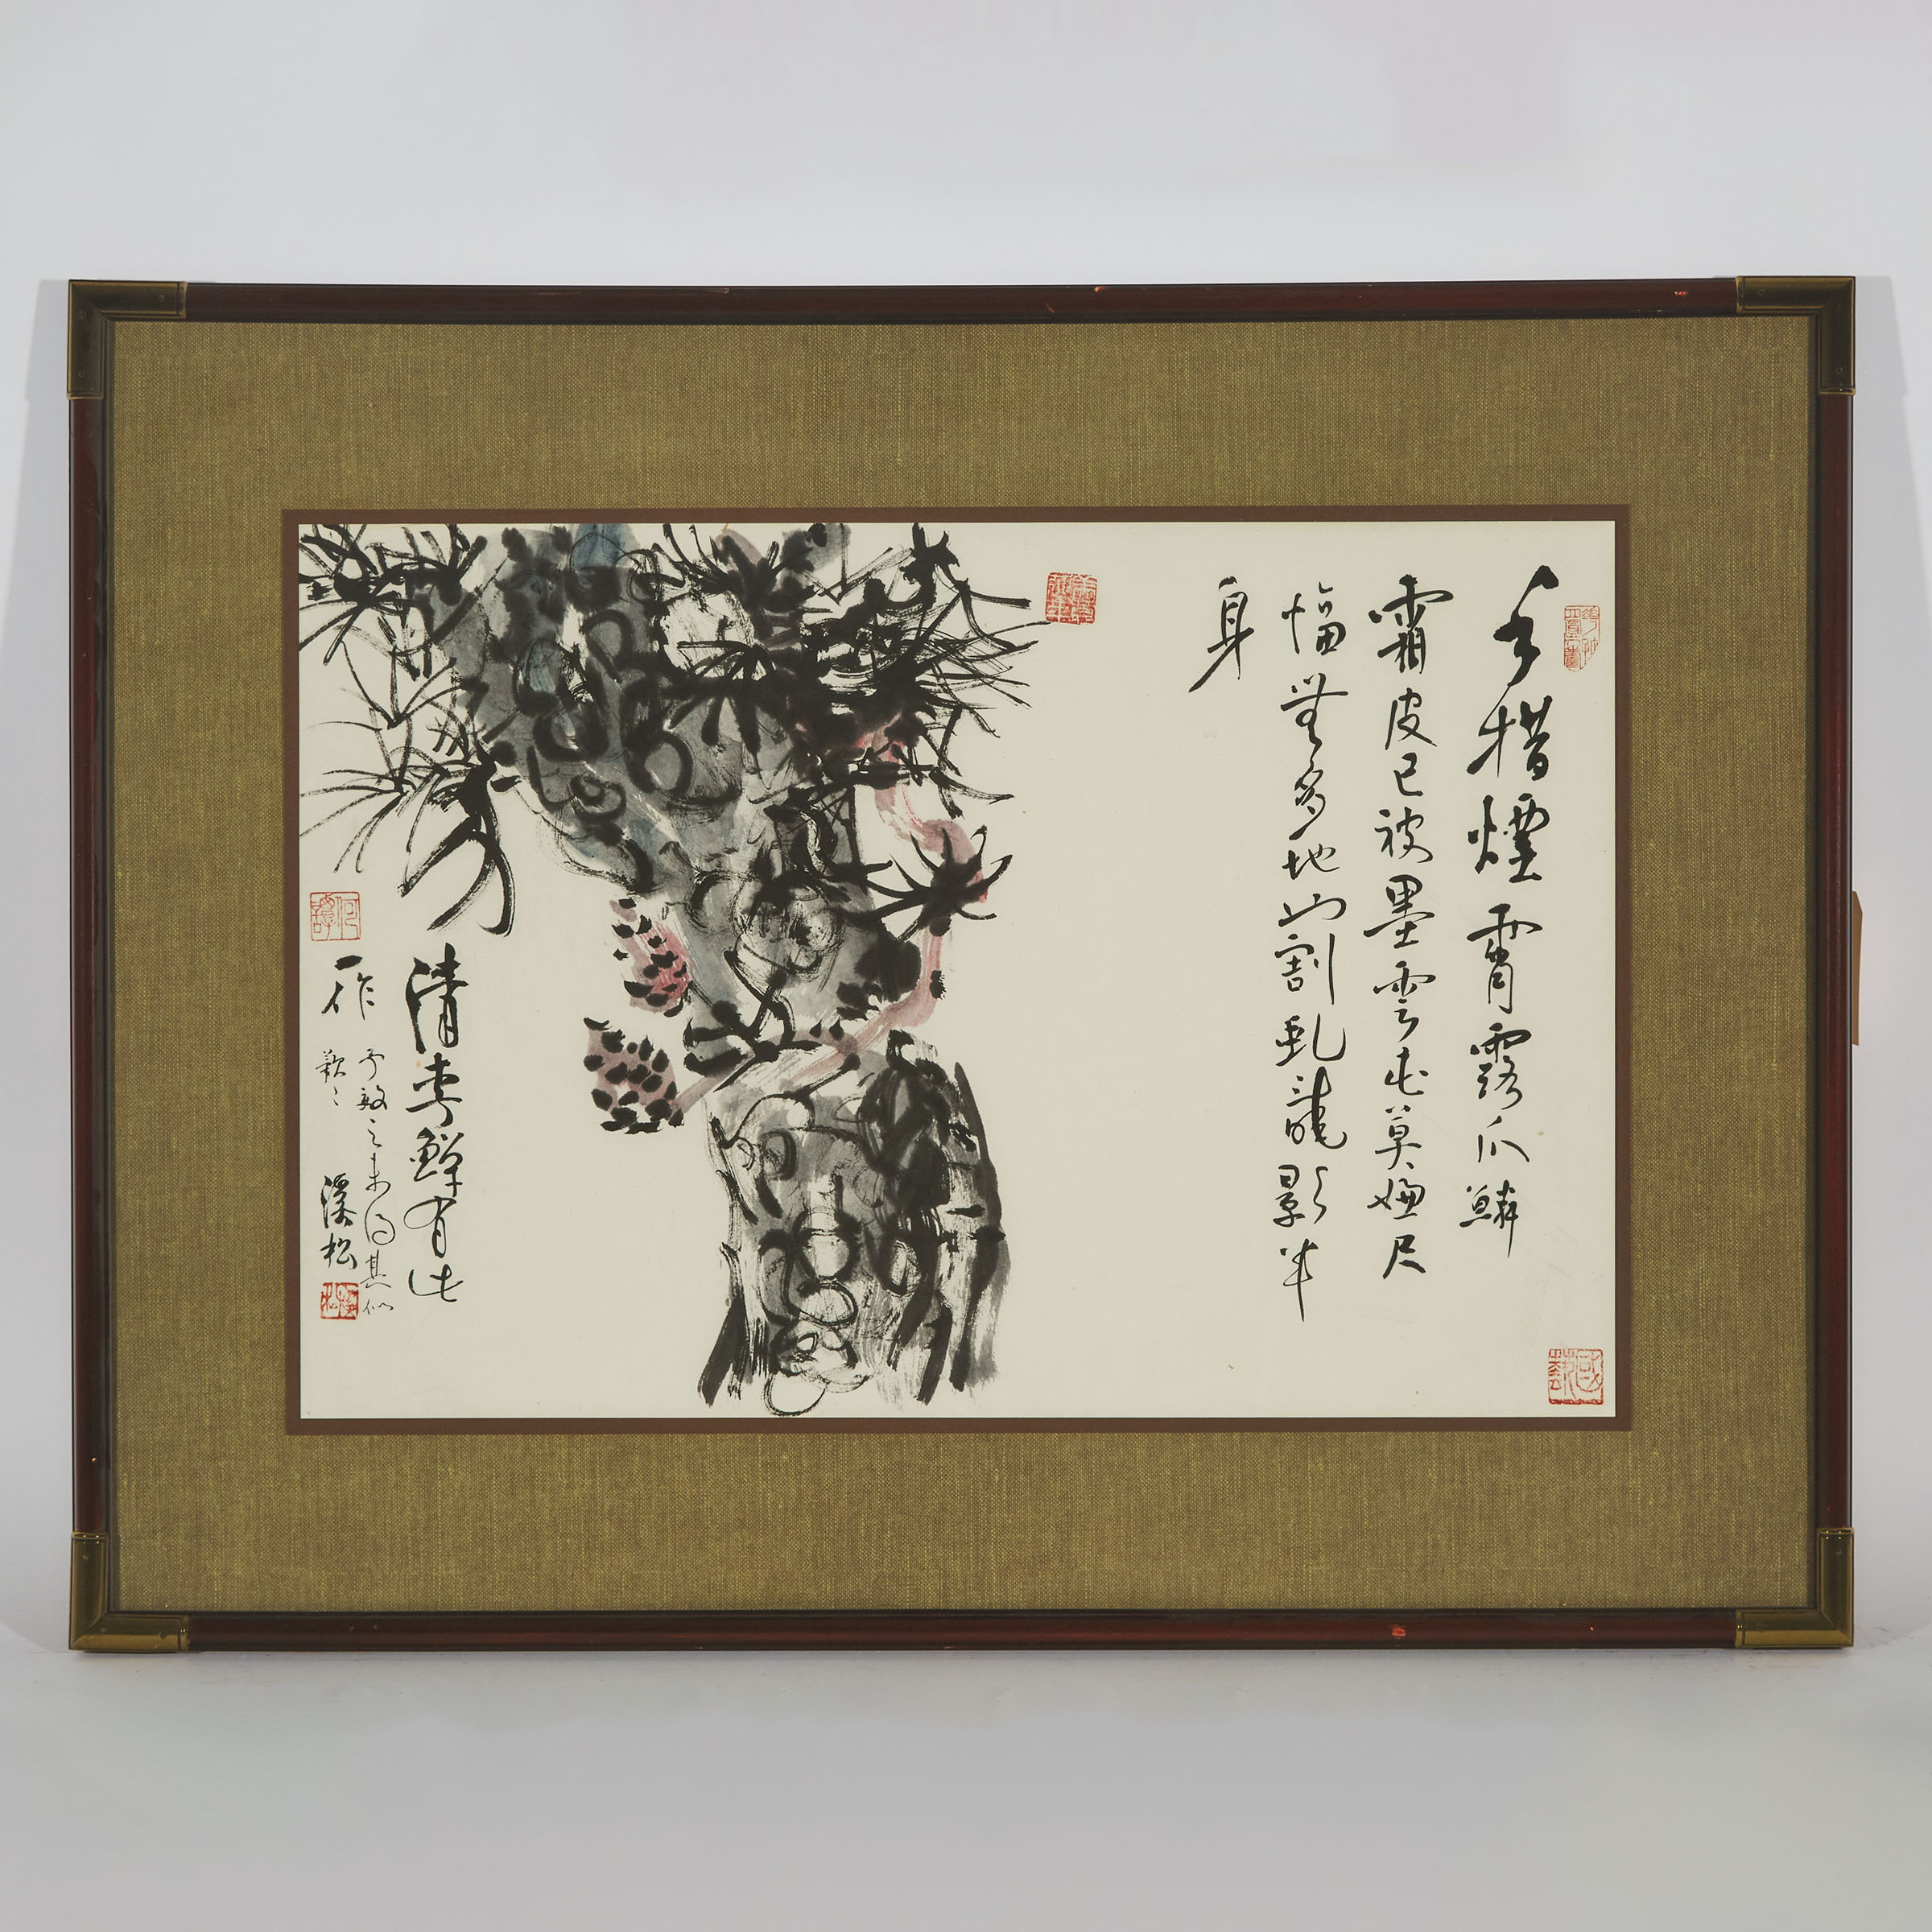 手揩煙霄露爪鱗
霜皮已被墨雲屯莫嫌尺
幅無多地只割虬龍影半
身
清李鱓有此
作予效之未得其似
歉歉
溪松